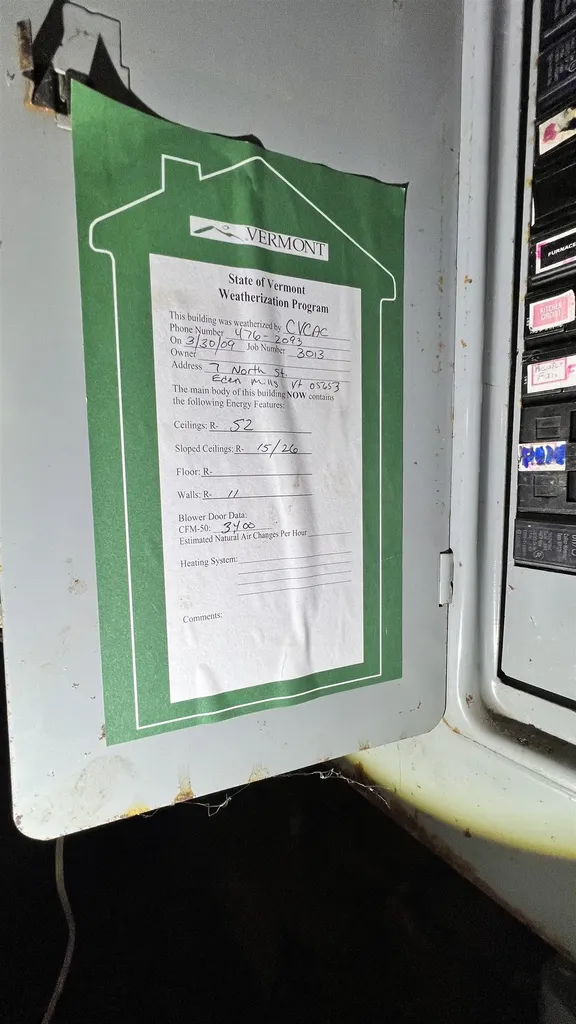 VERMONT
State of Vermont
Weatherization Program
This building was weatherized by CVCAC
Phone Number 476-2093
On 3/30/09 Job Number 3013
Owner
Address 7 North St.
Eden Mills Vt 05653
The main body of this building NOW contains
the following Energy Features:
Ceilings: R- 52
Sloped Ceilings: R- 15/26
Floor: R-
Walls: R- 11
Blower Door Data:
CFM-50: 3400
Estimated Natural Air Changes Per Hour
Heating System:
Comments:
FURNACE
KITCHEN